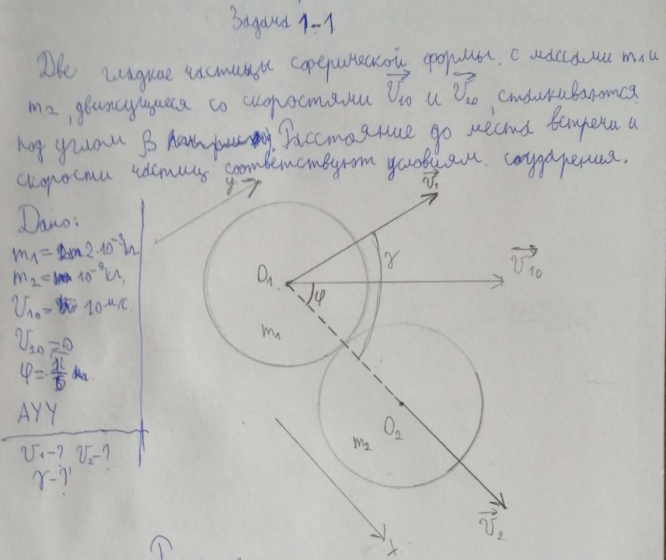 Задача 1-1
Две гладкие частицы сферической формы, с массами m₁ и
m₂, движущиеся со скоростями V₁₀ и V₂₀, сталкиваются
под углом β Расстояние до места встречи и
скорости частиц соответствуют условиям соударения.
y
V₁
Дано:
m₁ = 2·10⁻³кг
O₁
γ
V₁₀
m₂ = 10⁻³кг,
φ
V₁₀ = 10 м/с.
m₁
V₂₀ = 0
φ =
АУУ
O₂
m₂
V₁-? V₂-?
γ-?
V₂
x